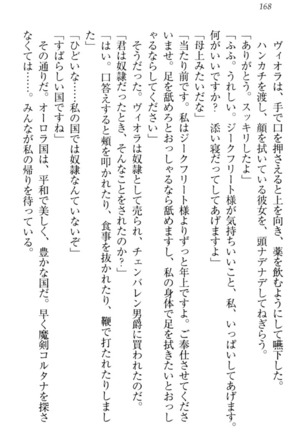 168
ヴィオラは、手で口を押さえると上を向き、薬を飲むようにして嚥下した。
ハンカチを渡し、顔を拭いている彼女を、頭ナデナデしてねぎらう。
「ありがとう。スッキリしたよ」
「ふふ。うれしい。ジークフリート様が気持ちいいこと、私、いっぱいしてあげます。
何がいいですか？　添い寝だってしてあげますよ」
「母上みたいだな」
「当たり前です。私はジークフリート様よりずっと年上ですよ。ご奉仕させてくださ
いませ。足を舐めろとおっしゃるなら舐めますし、私の身体で足を拭きたいとおっし
ゃるならしてください」
そうだった。ヴィオラは奴隷として売られ、チェンバレン男爵に買われたのだ。
「君は奴隷だったとき、そんなことをされたのか？」
「はい。口答えすると頬を叩かれたり、食事を抜かれたり、鞭で打たれたりしまし
た」
「ひどいな……私の国では奴隷なんていないぞ」
「すばらしい国ですね」
その通りだ。オーロラ国は、平和で美しく、豊かな国だ。早く魔剣コルタナを探さ
なくては……。みんなが私の帰りを待っている。